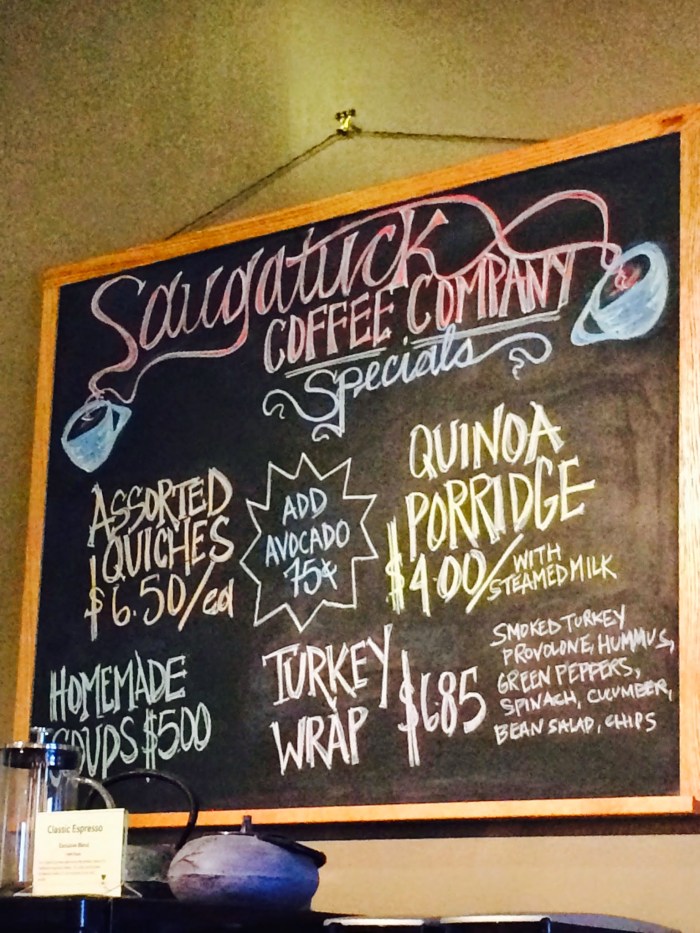 Saugatuck
COFFEE COMPANY
Specials
ASSORTED
QUICHES
$6.50/ea
ADD
AVOCADO
75¢
QUINOA
PORRIDGE
$4.00/WITH
STEAMED MILK
HOMEMADE
SOUPS $500
TURKEY
WRAP
$685
SMOKED TURKEY
PROVOLONE, HUMMUS,
GREEN PEPPERS,
SPINACH, CUCUMBER,
BEAN SALAD, CHIPS
Classic Espresso